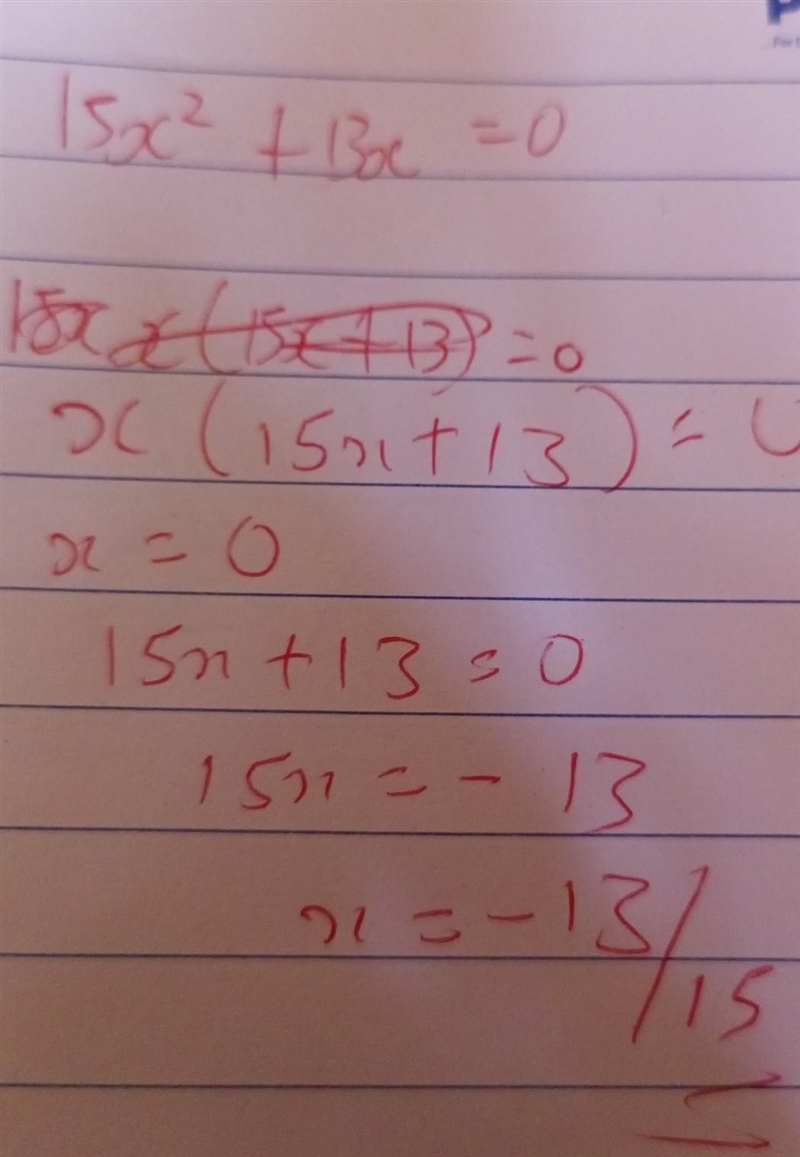 15x² + 13x = 0
15x x(15x+13) = 0
x(15x+13) = 0
x = 0
15x + 13 = 0
15x = - 13
x = - 13/15